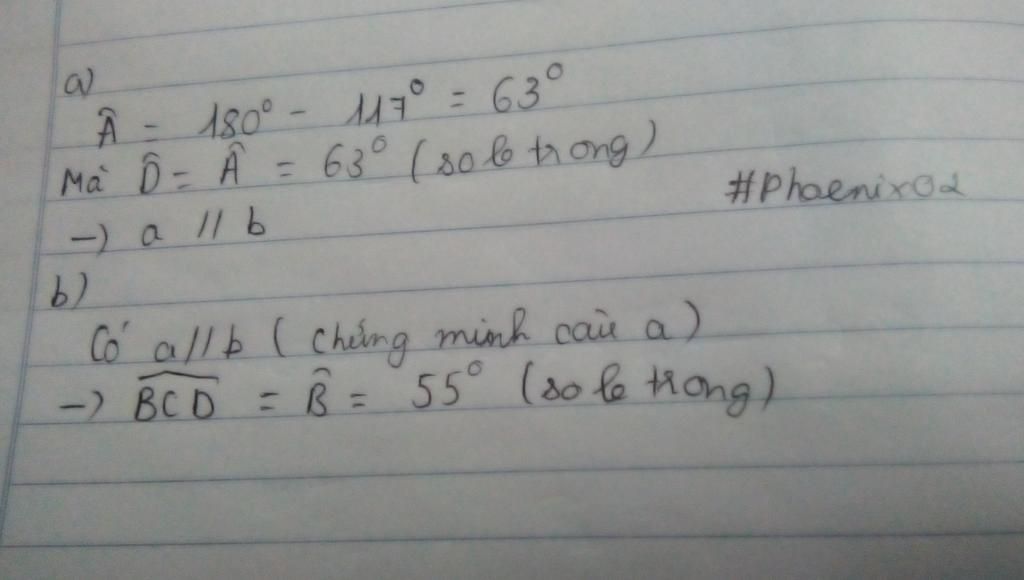 a)
Â = 180° - 117° = 63°
Mà D̂ = Â = 63° (so le trong)
#Phoenix02
→ a // b
b)
Có a // b (chứng minh câu a)
→ B͡CD = B̂ = 55° (so le trong)